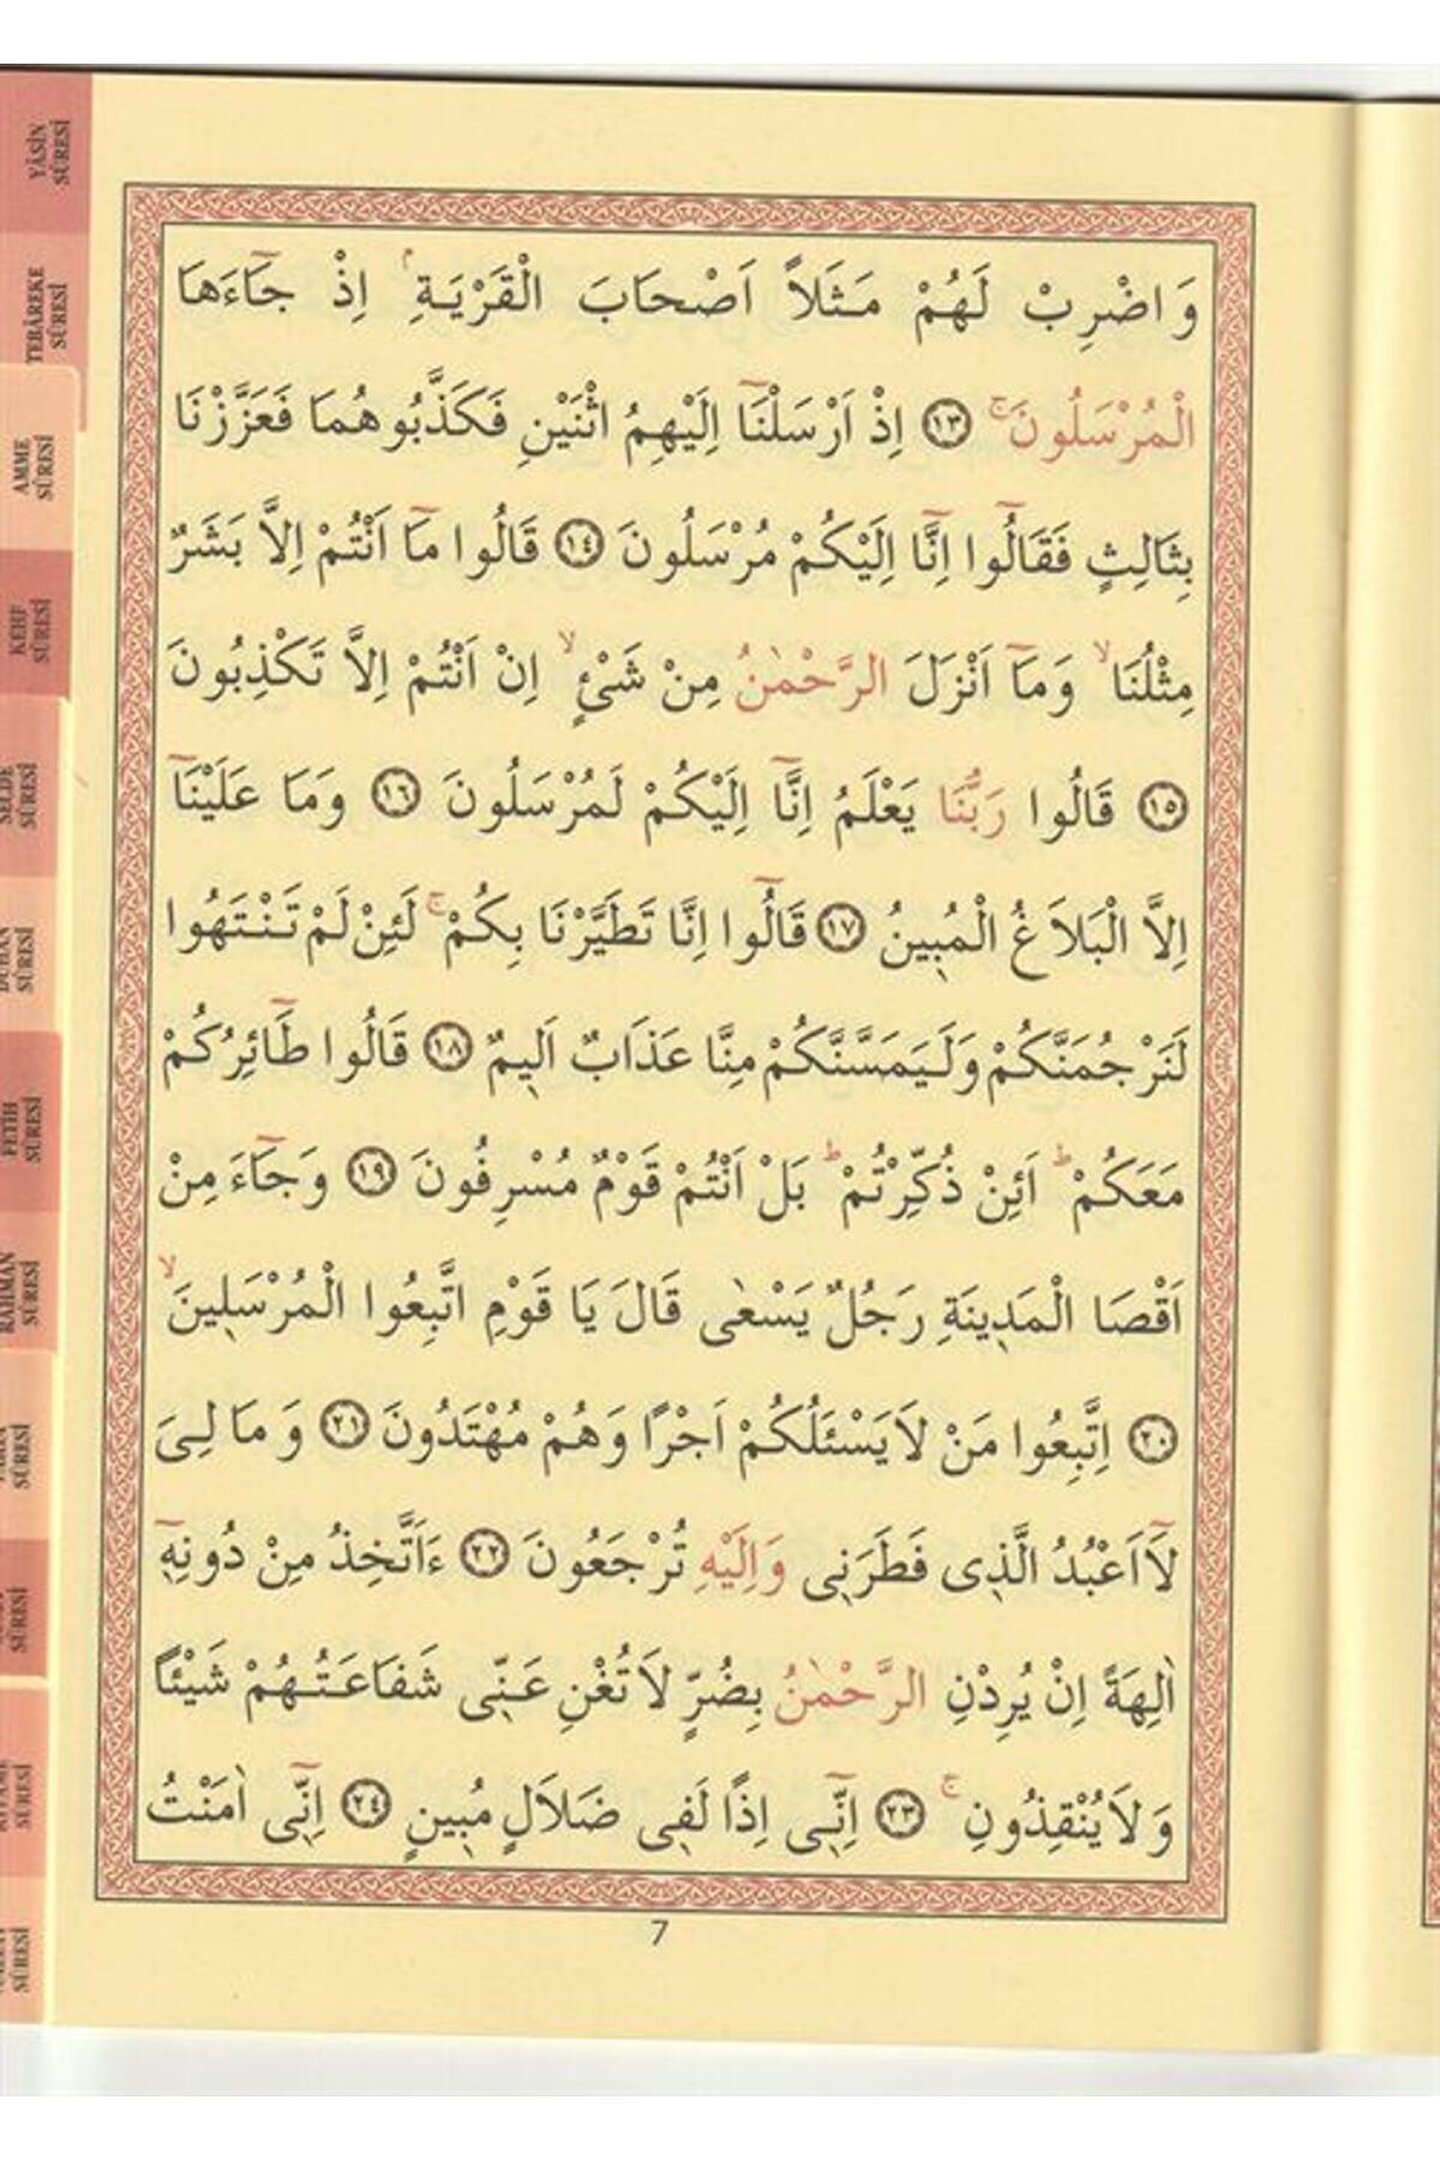 وَاضْرِبْ لَهُمْ مَثَلاً اَصْحَابَ الْقَرْيَةِۢ اِذْ جَٓاءَهَا
الْمُرْسَلُونَۚ ﴿١٣﴾ اِذْ اَرْسَلْنَٓا اِلَيْهِمُ اثْنَيْنِ فَكَذَّبُوهُمَا فَعَزَّزْنَا
بِثَالِثٍ فَقَالُٓوا اِنَّٓا اِلَيْكُمْ مُرْسَلُونَ ﴿١٤﴾ قَالُوا مَٓا اَنْتُمْ اِلاَّ بَشَرٌ
مِثْلُنَاۙ وَمَٓا اَنْزَلَ الرَّحْمٰنُ مِنْ شَئٍْۙ اِنْ اَنْتُمْ اِلاَّ تَكْذِبُونَ
﴿١٥﴾ قَالُوا رَبُّنَا يَعْلَمُ اِنَّٓا اِلَيْكُمْ لَمُرْسَلُونَ ﴿١٦﴾ وَمَا عَلَيْنَٓا
اِلاَّ الْبَلاَغُ الْمُبٖينُ ﴿١٧﴾ قَالُٓوا اِنَّا تَطَيَّرْنَا بِكُمْۚ لَئِنْ لَمْ تَنْتَهُوا
لَنَرْجُمَنَّكُمْ وَلَيَمَسَّنَّكُمْ مِنَّا عَذَابٌ اَلٖيمٌ ﴿١٨﴾ قَالُوا طَٓائِرُكُمْ
مَعَكُمْؕ اَئِنْ ذُكِّرْتُمْؕ بَلْ اَنْتُمْ قَوْمٌ مُسْرِفُونَ ﴿١٩﴾ وَجَٓاءَ مِنْ
اَقْصَا الْمَدٖينَةِ رَجُلٌ يَسْعٰى قَالَ يَا قَوْمِ اتَّبِعُوا الْمُرْسَلٖينَۙ
﴿٢٠﴾ اِتَّبِعُوا مَنْ لاَ يَسْئَلُكُمْ اَجْرًا وَهُمْ مُهْتَدُونَ ﴿٢١﴾ وَمَا لِىَ
لَٓا اَعْبُدُ الَّذٖى فَطَرَنٖى وَاِلَيْهِ تُرْجَعُونَ ﴿٢٢﴾ ءَاَتَّخِذُ مِنْ دُونِهٖٓ
اٰلِهَةً اِنْ يُرِدْنِ الرَّحْمٰنُ بِضُرٍّ لاَ تُغْنِ عَنّٖى شَفَاعَتُهُمْ شَيْئًا
وَلاَ يُنْقِذُونِۚ ﴿٢٣﴾ اِنّٖٓى اِذًا لَفٖى ضَلاَلٍ مُبٖينٍ ﴿٢٤﴾ اِنّٖٓى اٰمَنْتُ
7
YÂSİN
SÛRESİ
TEBÂREKE
SÛRESİ
AMME
SÛRESİ
KEHF
SÛRESİ
SECDE
SÛRESİ
DUHÂN
SÛRESİ
FETİH
SÛRESİ
RAHMÂN
SÛRESİ
SÛRESİ
SÛRESİ
SÛRESİ
SÛRESİ